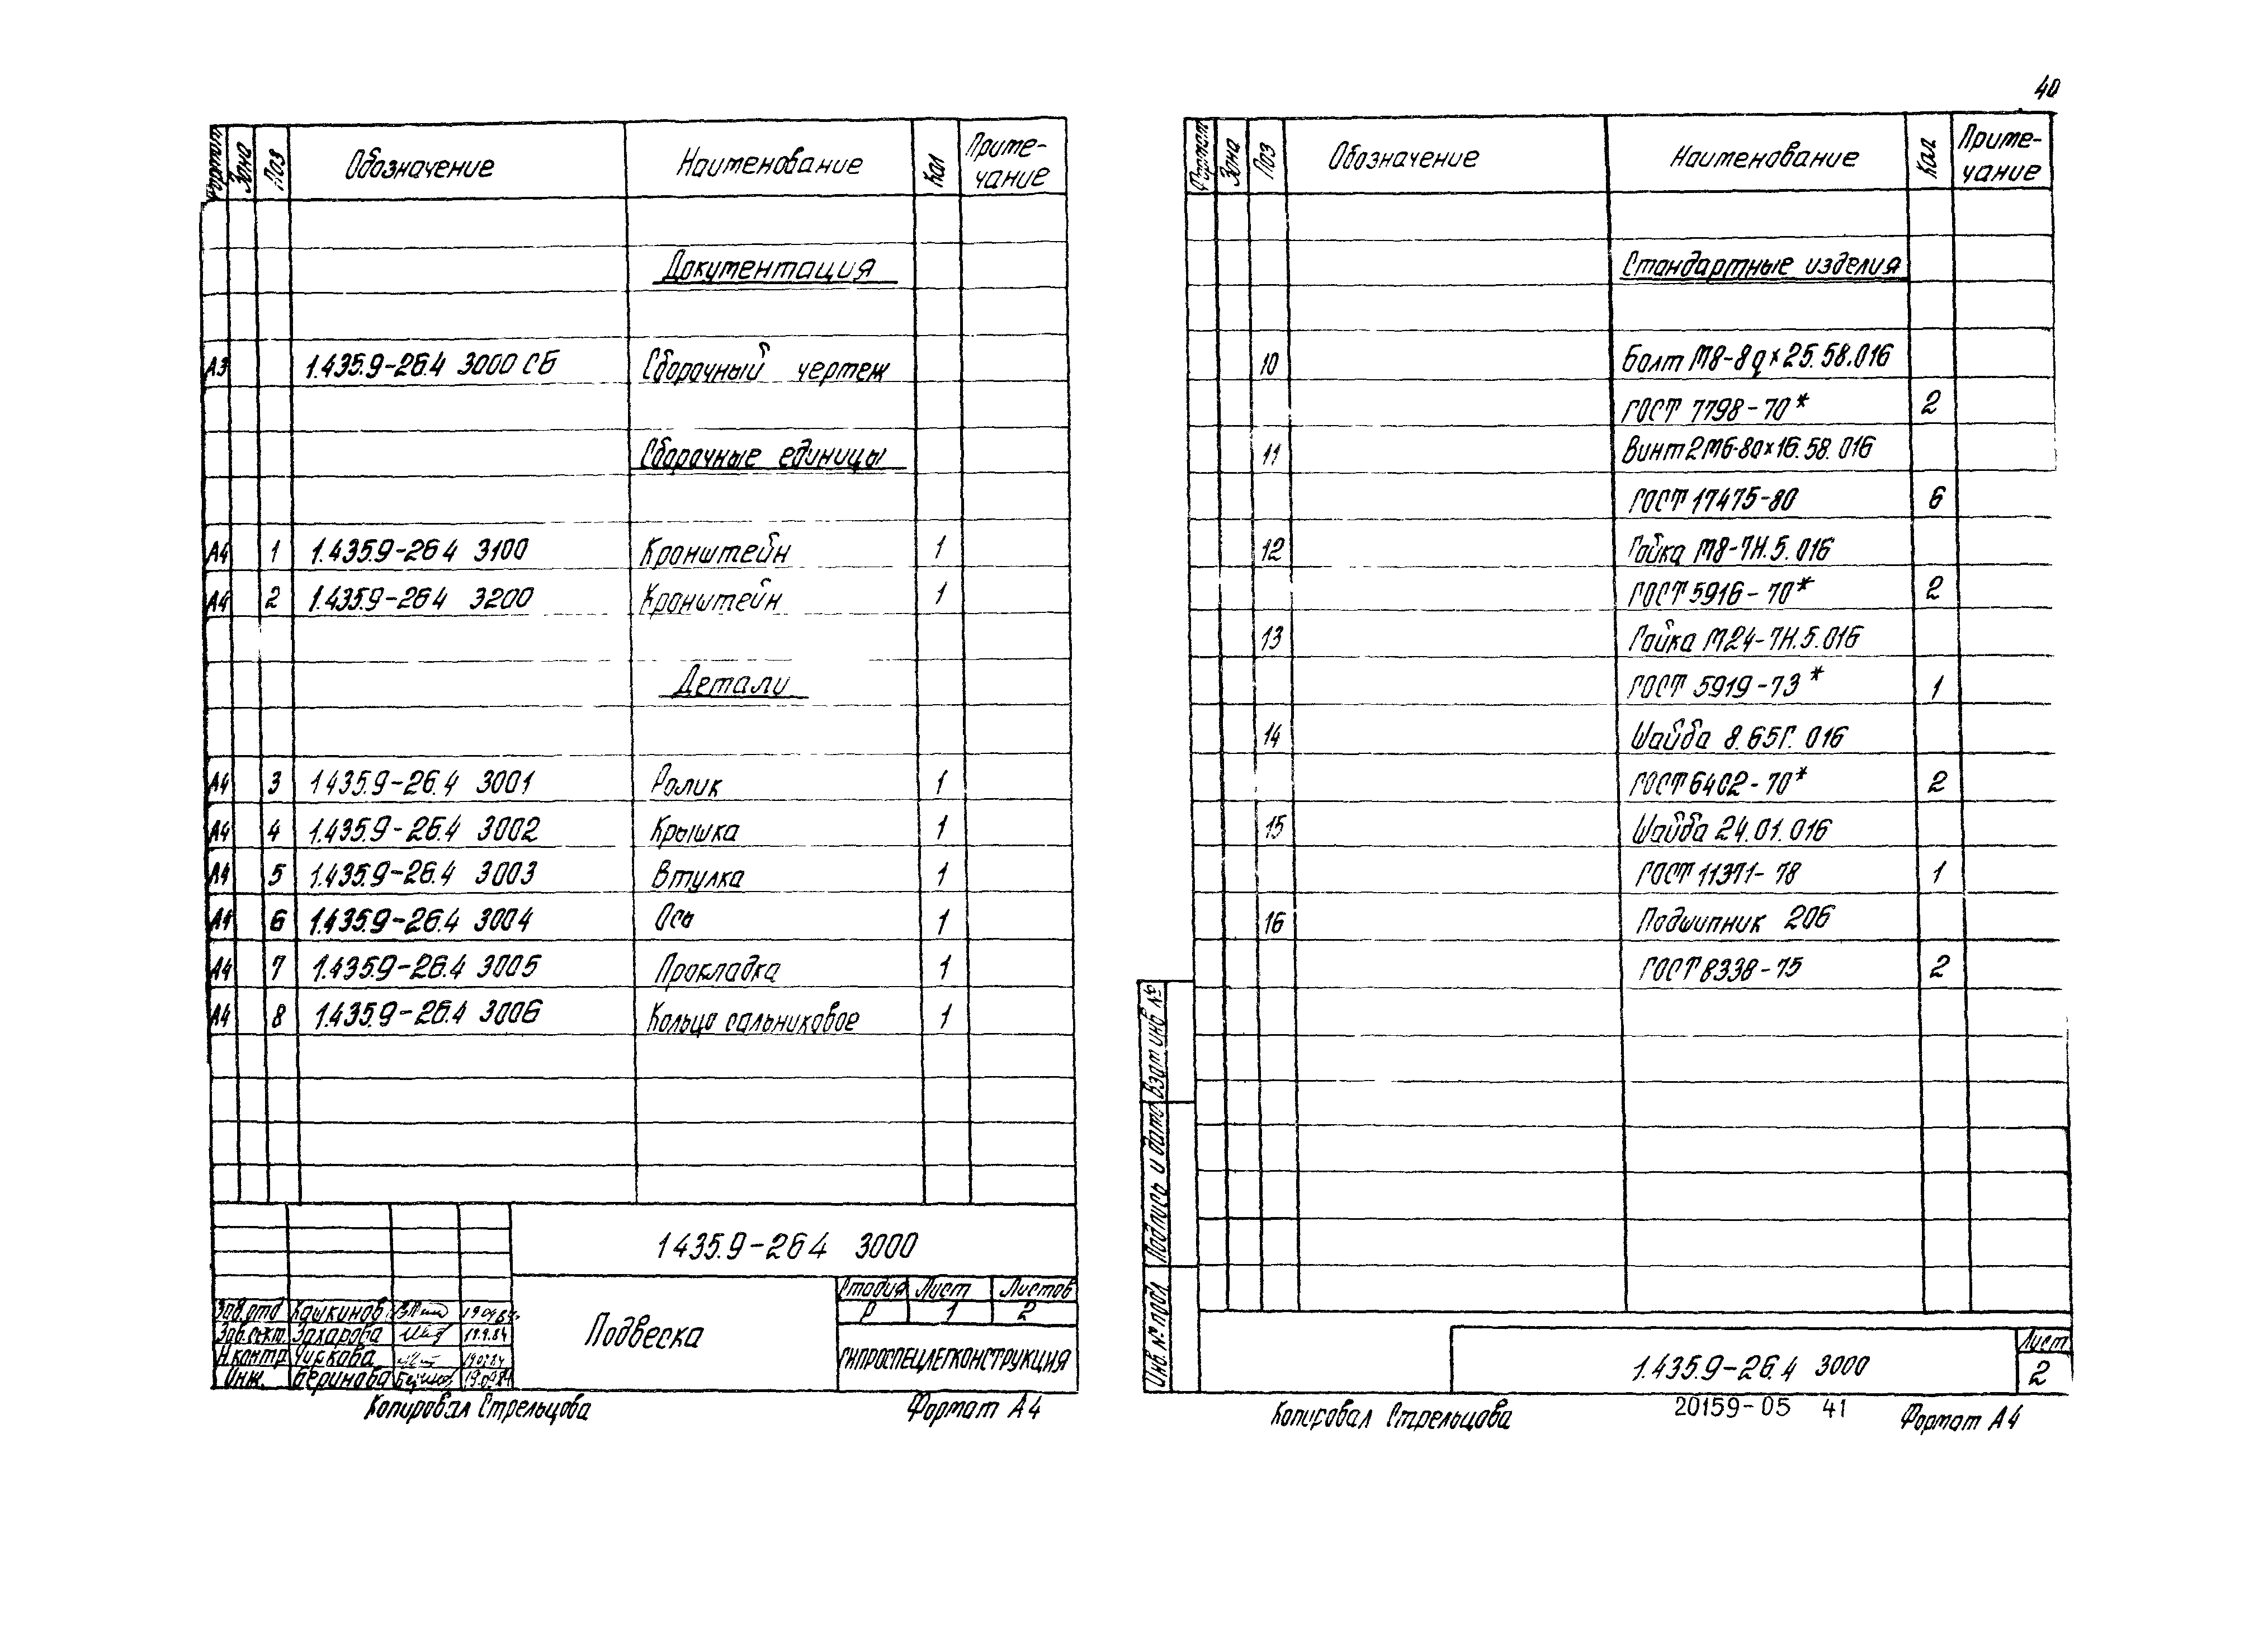 40
Формат Зона Поз Обозначение Наименование Кол Приме-
чание
Документация
А3 1.435.9-26.4 3000 СБ Сборочный чертеж
Сборочные единицы
А4 1 1.435.9-26 4 3100 Кронштейн 1
А4 2 1.435.9-26 4 3200 Кронштейн 1
Детали
А4 3 1 435.9-26.4 3001 Ролик 1
А4 4 1.435.9-26.4 3002 Крышка 1
А4 5 1.435.9-26.4 3003 Втулка 1
А4 6 1.435.9-26.4 3004 Ось 1
А4 7 1.435.9-26.4 3005 Прокладка 1
А4 8 1.435.9-26.4 3006 Кольцо сальниковое 1
1 435.9-26 4 3000
Подвеска
Стадия Лист Листов
Р 1 2
ГИПРОСПЕЦЛЕГКОНСТРУКЦИЯ
Зав.отд Кашкинов 19.09.84
Зав.сект. Захарова 19.9.84
Н.контр Чиркова
Инж. Беринова 19.09.84
Копировал Стрельцова Формат А4
Формат Зона Поз Обозначение Наименование Кол Приме-
чание
Стандартные изделия
10 Болт М8-8g×25.58.016
ГОСТ 7798-70* 2
11 Винт 2М6-8g×16.58.016
ГОСТ 17475-80 6
12 Гайка М8-7Н.5.016
ГОСТ 5916-70* 2
13 Гайка М24-7Н.5.016
ГОСТ 5919-73* 1
14 Шайба 8.65Г.016
ГОСТ 6402-70* 2
15 Шайба 24.01.016
ГОСТ 11371-78 1
16 Подшипник 206
ГОСТ 8338-75 2
Взам инв №
Подпись и дата
Инв. № подл
1.435.9-26.4 3000
Лист
2
Копировал Стрельцова 20159-05 41 Формат А4